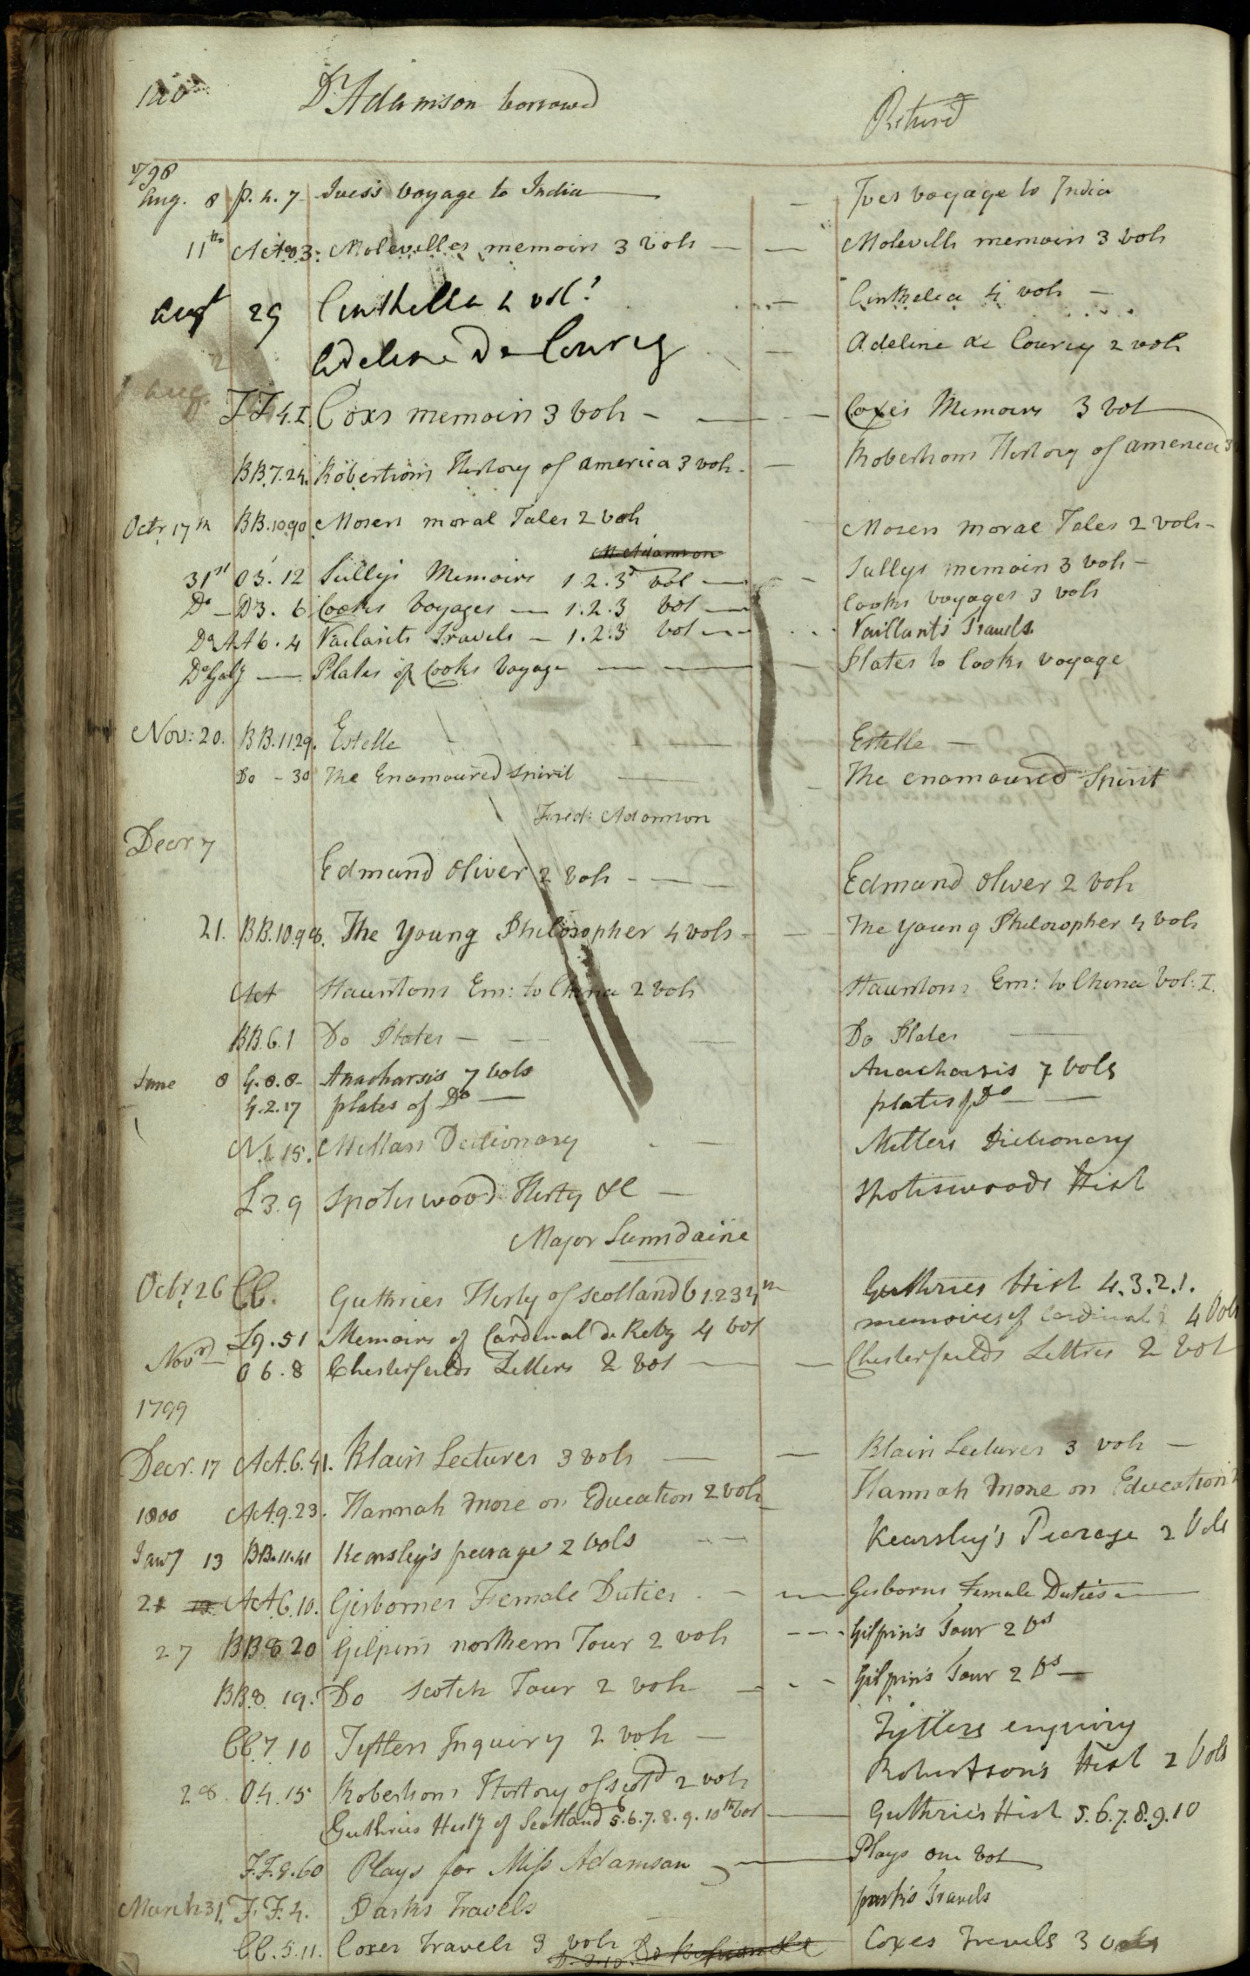 120 Dr Adamson borrowed Returd
1798
Aug. 8 P. h. 7 Ives's Voyage to India — Ives voyage to India
11th Molevilles memoirs 3 Vols — Molevills memoirs 3 vols
Augt 29 Cinthelia 4 vol! — Cinthelia 4 vols —
Adeline De Courcy — Adeline de Courcy 2 vols
Aug. 2
FF 4.I. Coxs memoirs 3 vols — Coxe's Memoirs 3 vol
BB.7.24. Robertsons History of america 3 vols. — Robertsons History of america 3
Octr 17th BB.10.90 Mosers moral Tales 2 vols Mosers moral Tales 2 vols -
M Adamson
31st O 5. 12 Sully's Memoirs 1. 2. 3d vol — Sullys memoirs 3 vols -
Do — D3. 6 Cooks Voyages — 1. 2. 3 vol — Cooks voyages 3 vols
Do AA6. 4 Vailants Travels — 1. 2. 3 vol — Vaillants Travels
Do Galy — Plates of Cooks Voyage — Plates to Cooks voyage
Nov: 20. BB.11.29. Estelle — Estelle —
Do - 30 The Enamoured Spirit — The enamoured Spirit
Fred: Adamson
Decr 7
Edmand Oliver 2 Vols - — Edmand Oliver 2 vols
21. BB.10.98. The Young Philosopher 4 vols - The Young Philosopher 4 vols
AA Stauntons Em: to China 2 vols Stauntons Em: to China Vol: I.
BB.6.1 Do Plates — Do Plates —
June 8 G. 8. 8 - Anacharsis 7 Vols Anacharsis 7 Vols
G. 2. 17 plates of Do — plates of Do —
N. 1. 15. Millars Dictionary — Millers Dictionary
L 3. 9 Spotiswood Histy &c — Spotiswoods Hist
Major
Octr 26 CC. Guthries Histy of Scotland V 1 2 3 4th Guthries Hist 4. 3. 2. 1.
L9. 51 Memoirs of Cardinal de Retz 4 vol memoires of Cardinal 4 Vols
Nov O 6. 8 Chesterfields Letters 2 vol — Chesterfields Lettres 2 Vol
1799
Decr. 17 AA.6.41. Blairs Lectures 3 vols — Blairs Lectures 3 vols —
1800 AA9.23. Hannah More on Education 2 vols Hannah More on Education 2
Jany 13 BB.11.41 Kearsley's peerage 2 vols Kearsley's Peerage 2 Vols
21 AA.6.10. Gisbornes Female Duties — Gisborns Female Duties
27 BB 8 20 Gilpin's northern Tour 2 vols - - - Gilpin's Tour 2 Vs
BB.8 19. Do Scotch Tour 2 vols — Gilpin's Tour 2 Vs —
CC.7 10 Tytlers Inquiry 2 vols — Tytlers enquiry
28 O4. 15 Robertsons History of Scotd 2 vols Robertson's Hist 2 Vols
Guthries Histy of Scotland 5. 6. 7. 8. 9. 10th vol — Guthrie's Hist 5. 6. 7. 8. 9. 10
F.F.8.60 Plays for Miss Adamson — Plays one Vol
March 31. F. F. 4. Parks Travels park's Travels
CC. 5. 11. Coxes Travels 3 vols Coxes Travels 3 vols